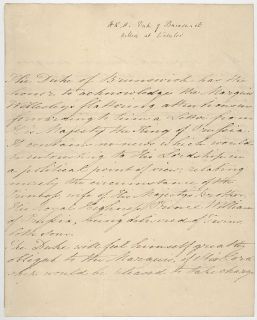 H.R.H. Duke of Brunswick
The Duke of Brunswick has the
honor to acknowledge the Marquis
Wellesley's flattering attention in
forwarding to him a Letter from
His Majesty the King of Prussia
It contains no news which would
be interesting to His Lordship in
a political point of view; relating
merely the circumstance of the
of His Majesty's Brother
His Royal Highness Prince William
of Prussia, being delivered of
The Duke will feel himself greatly
obliged to the Marquis, if His Lord
ship would be pleased to take charge